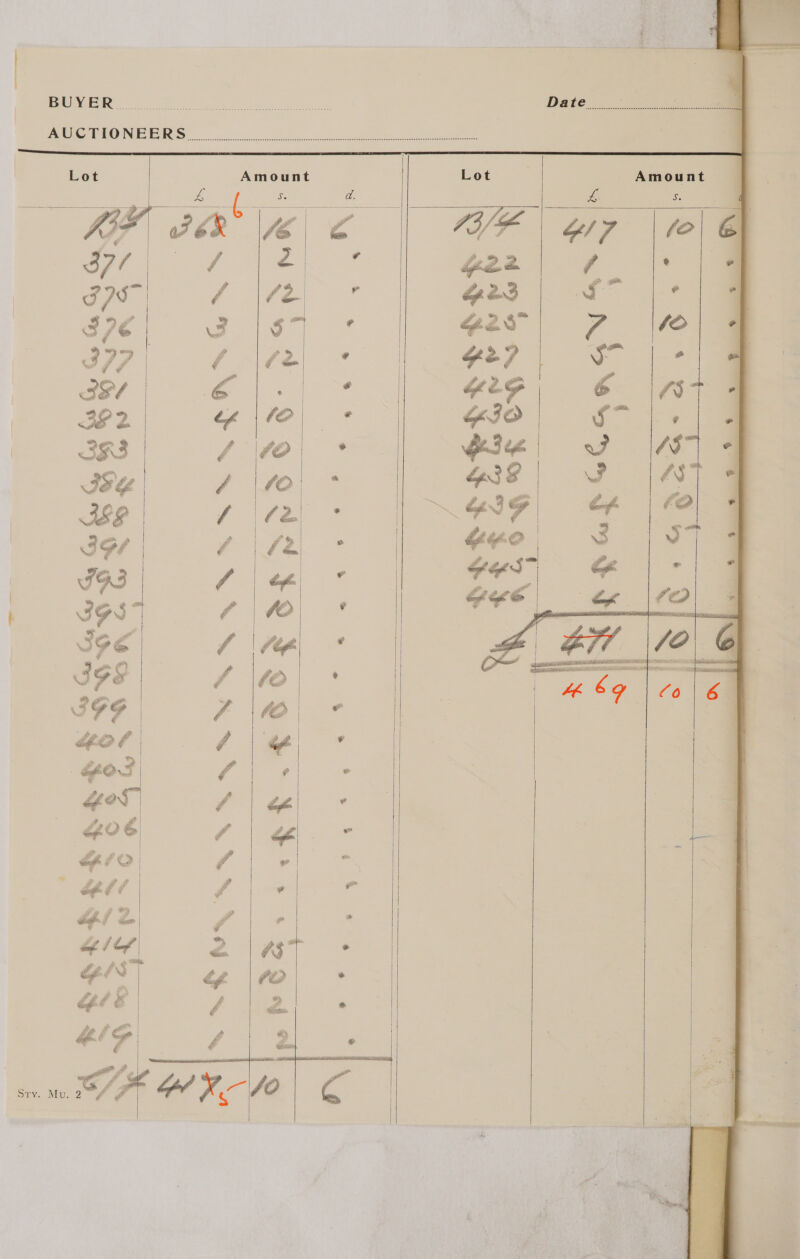 BUYER Date
AUCTIONEERS
Lot Amount
£ s. d.
B/F 368 16 6
6
371 1 2 "
375 1 12 "
376 3 5 "
377 1 12 "
381 6 . "
382 4 10 "
383 1 10 "
384 1 10 "
388 1 12 "
391 1 12 "
393 1 4 "
395 1 10 "
396 1 14 "
398 1 10 "
399 1 10 "
401 1 4 "
403 1 " "
405 1 4 "
406 1 4 "
410 1 " "
411 1 " "
412 1 " "
414 2 15 "
415 4 10 "
418 1 2 "
419 1 2 "
C/F 417 10 6
5
Srv. Mu. 2
Lot Amount
£ s.
B/F 417 10 6
422 1 " "
423 5 " "
425 7 10 "
427 5 " "
429 6 15 "
430 5 " "
434 3 15 "
438 3 15 "
439 4 10 "
440 3 5 "
445 4 " "
446 4 10 "
£ 471 10 6
469 10 6